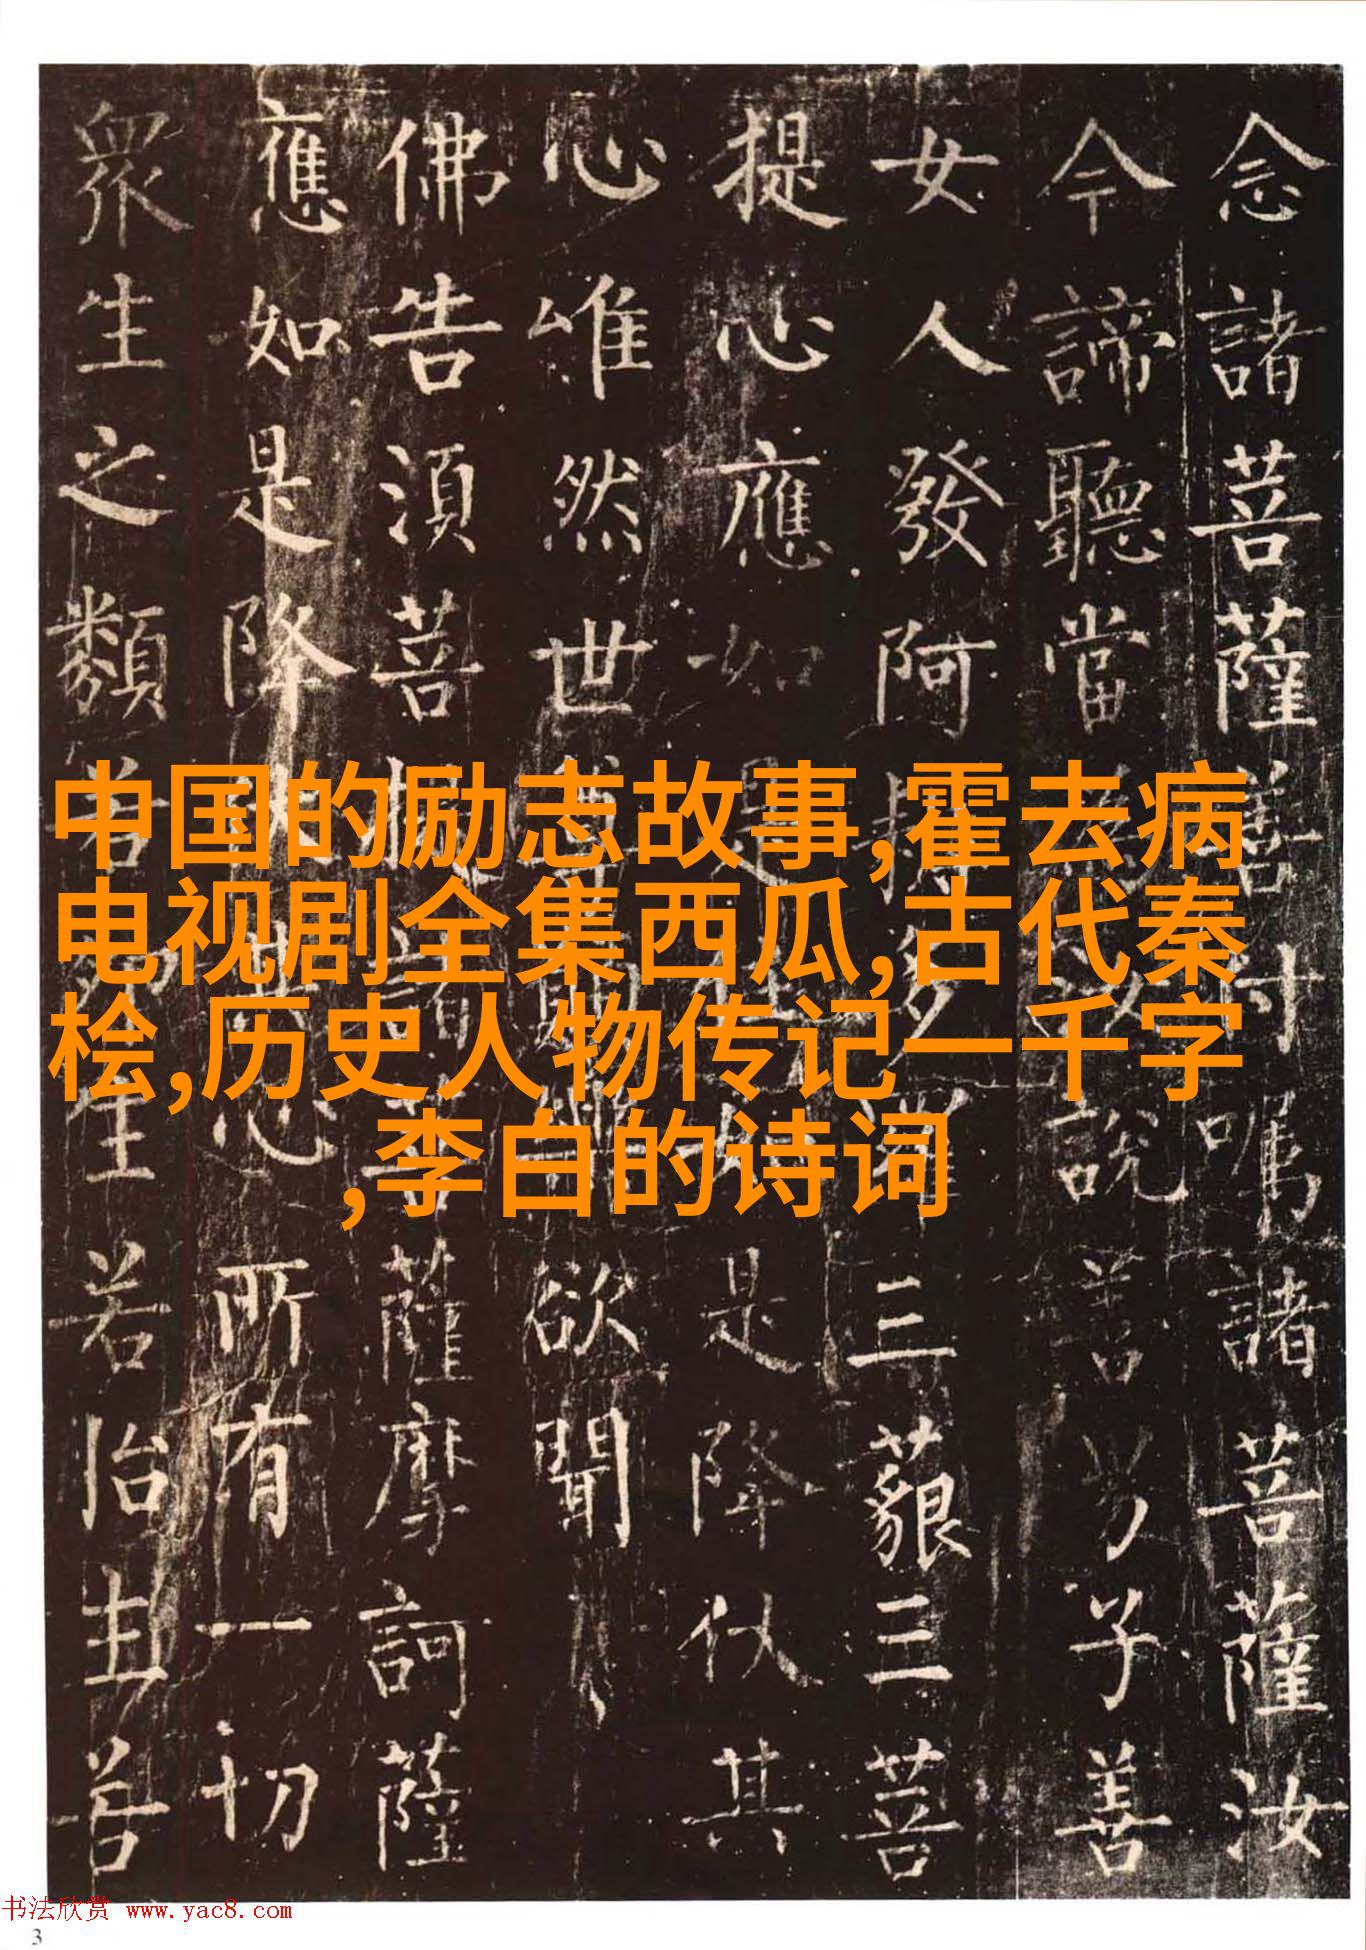 念諸菩薩善付嘱諸菩薩汝
今諦聽當汝說善男子善
女人發阿耨多羅三藐三菩
提心應如是住如是降伏其
心唯然世尊欲聞
佛告須菩提諸菩薩摩訶薩
應如是降其心所有一切
眾生之類若生若胎生若
中国的励志故事,霍去病
电视剧全集西瓜,古代秦
桧,历史人物传记一千字
,李白的诗词
书法欣赏 www.yac8.com
3